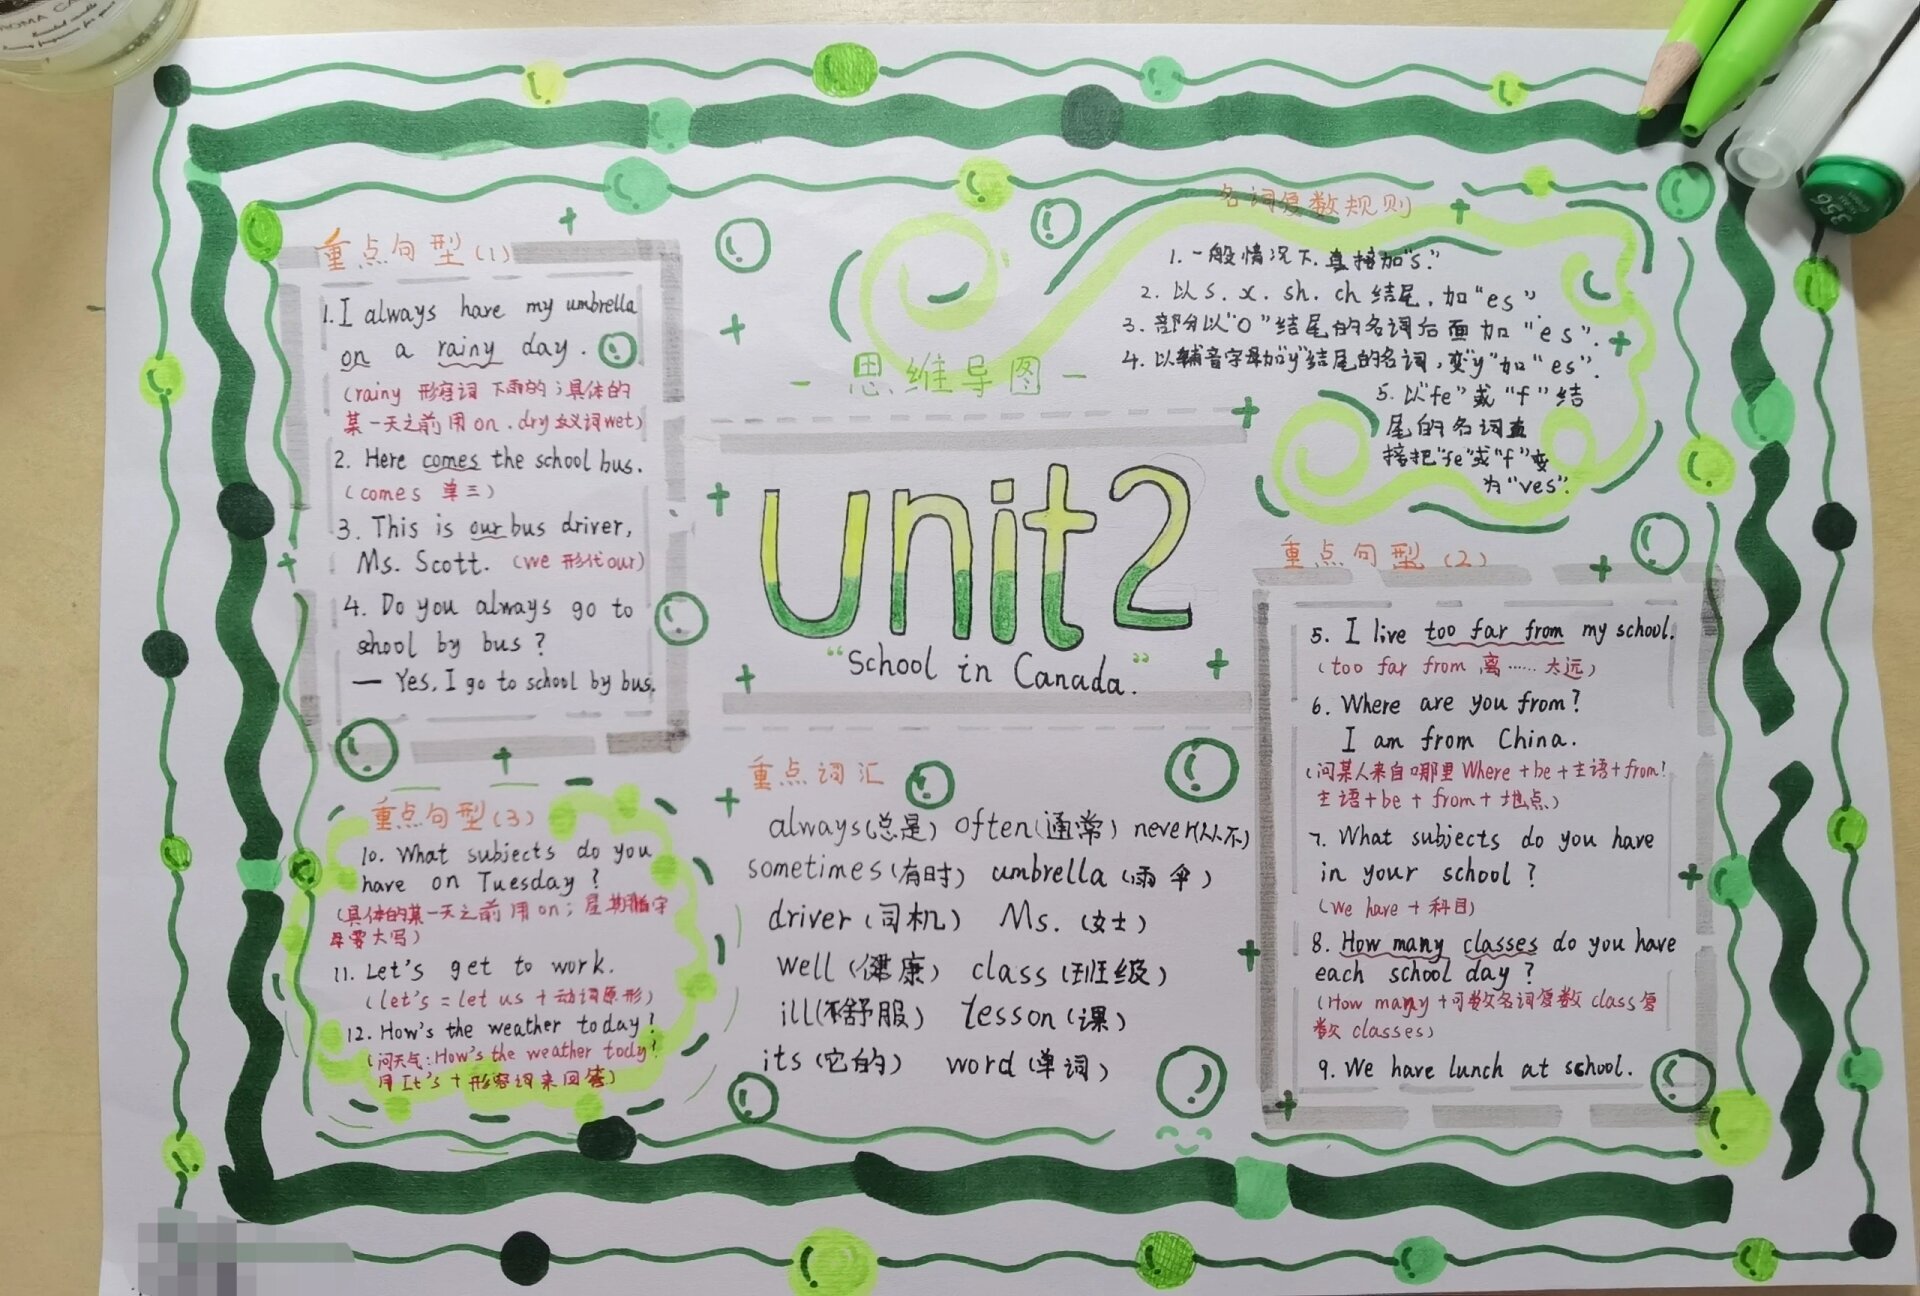 重点句型(1)
1. I always have my umbrella
on a rainy day.
(rainy 形容词 下雨的；具体的
某一天之前用on. dry 反义词wet)
2. Here comes the school bus.
(comes 单三)
3. This is our bus driver,
Ms. Scott. (we 形代our)
4. Do you always go to
school by bus?
— Yes, I go to school by bus.
重点句型(3)
10. What subjects do you
have on Tuesday?
(具体的某一天之前用on；星期首字
母要大写)
11. Let's get to work.
(let's = let us + 动词原形)
12. How's the weather today?
(问天气: How's the weather tody?
用It's + 形容词来回答)
- 思维导图 -
unit2
"School in Canada."
重点词汇
always(总是) often(通常) never(从不)
sometimes(有时) umbrella(雨伞)
driver(司机) Ms.(女士)
well(健康) class(班级)
ill(不舒服) lesson(课)
its(它的) word(单词)
名词复数规则
1. 一般情况下. 直接加"s."
2. 以s. x. sh. ch 结尾. 加"es".
3. 部分以"o"结尾的名词后面加"es".
4. 以辅音字母加"y"结尾的名词, 变"y"加"es".
5. 以"fe"或"f"结
尾的名词直
接把"fe"或"f"变
为"ves".
重点句型(2)
5. I live too far from my school.
(too far from 离……太远)
6. Where are you from?
I am from China.
(问某人来自哪里 Where+be+主语+from!
主语+be+from+地点)
7. What subjects do you have
in your school?
(we have + 科目)
8. How many classes do you have
each school day?
(How many+可数名词复数 class复
数 classes)
9. We have lunch at school.
356